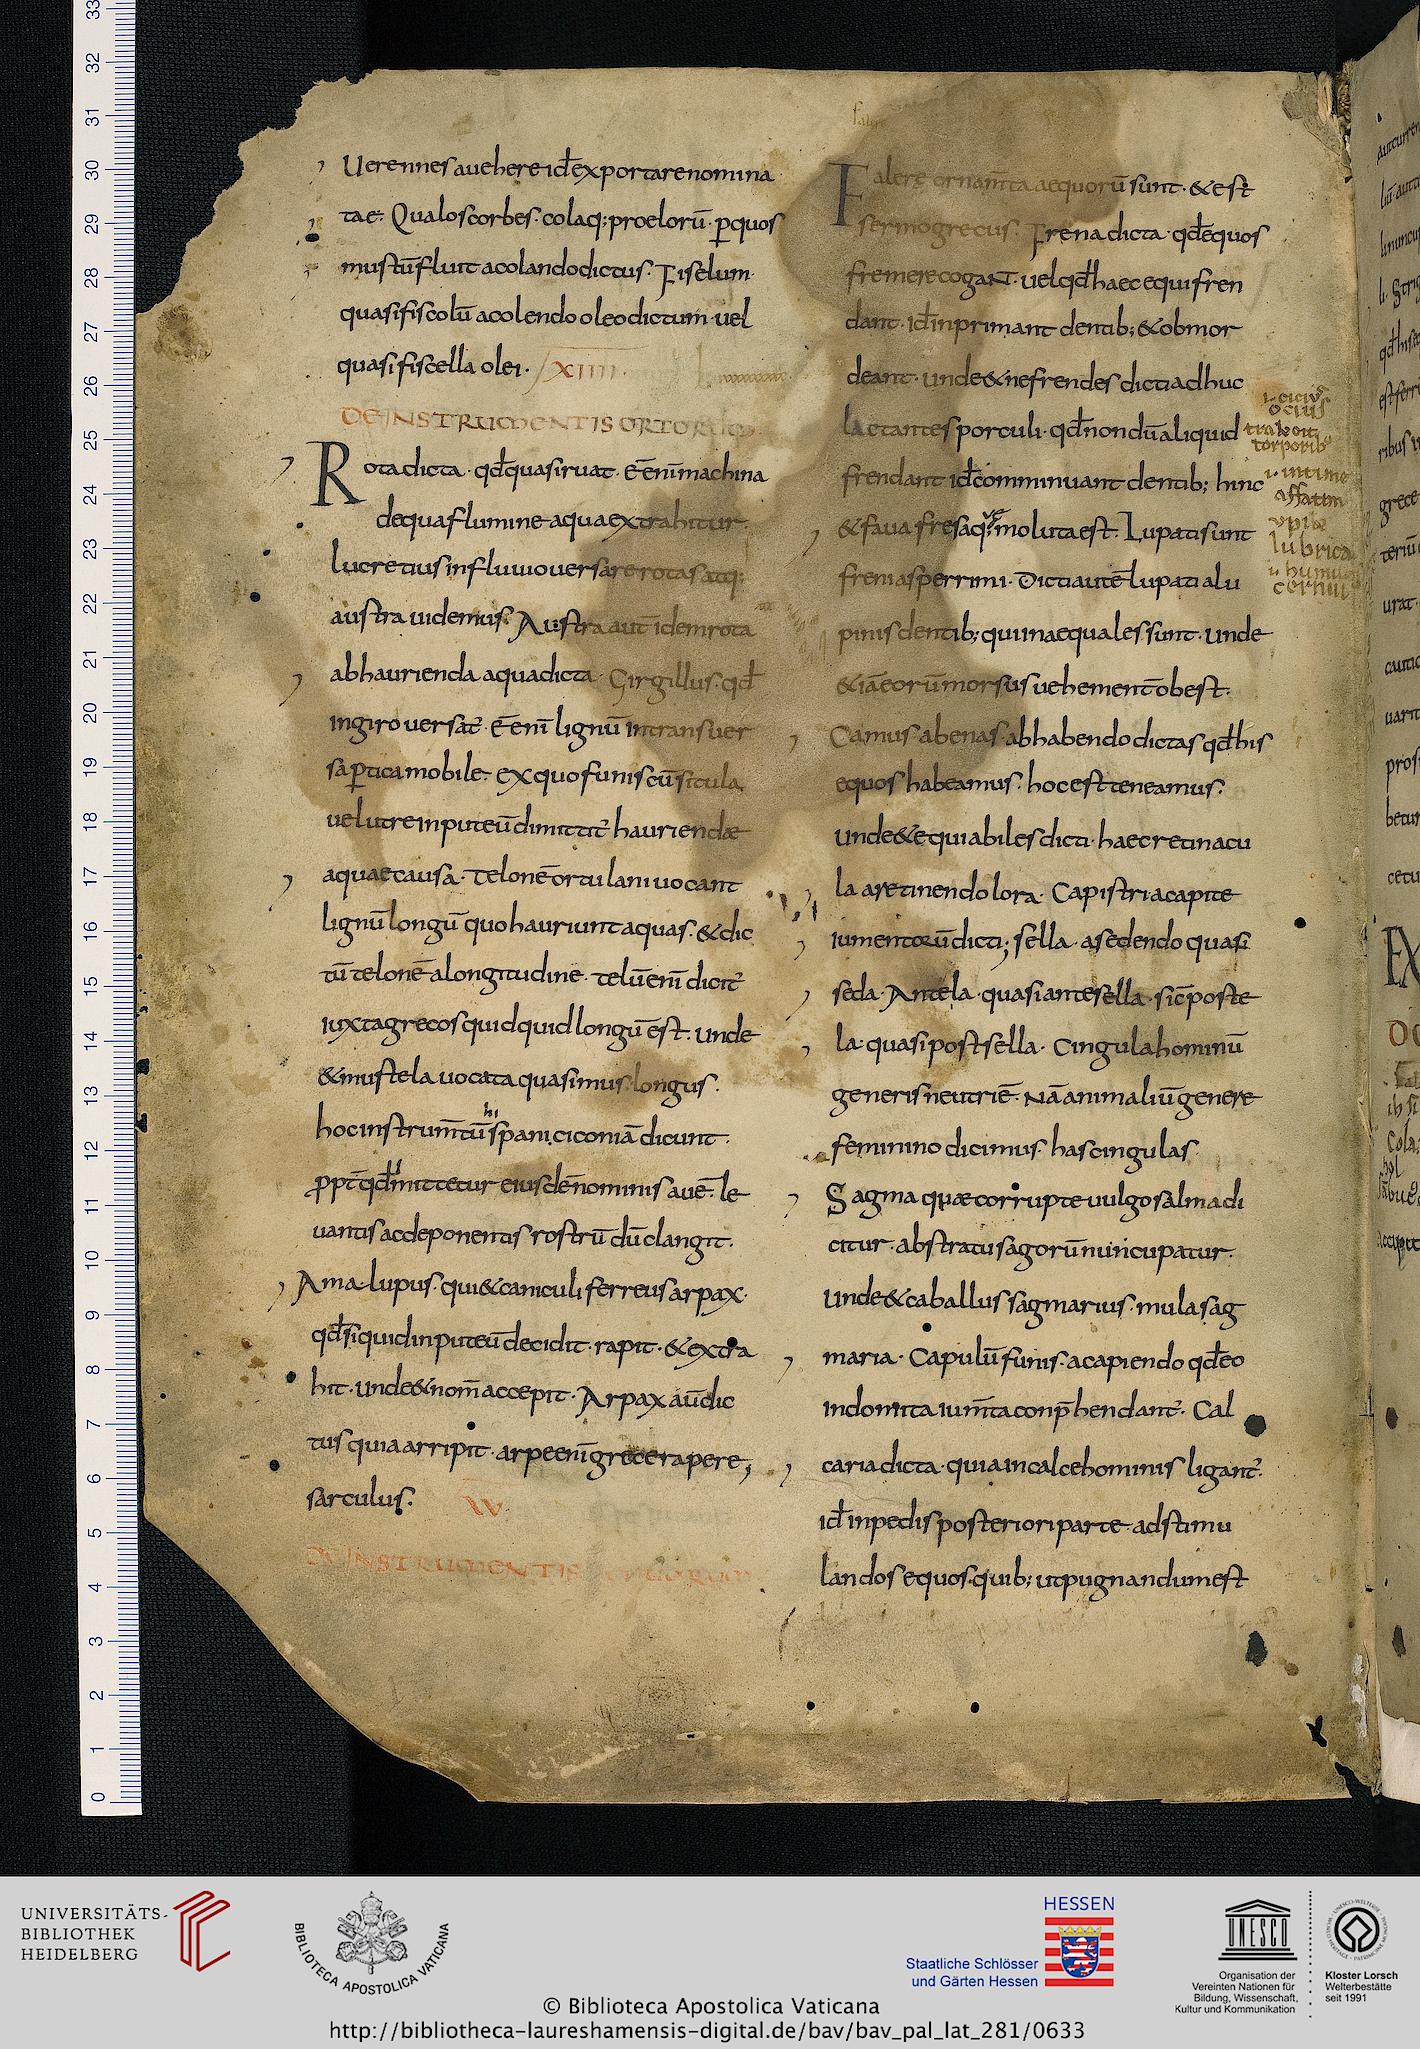 Uerennes auehere id̄ exportare nomina
tae. Qualos corbes. colaq; proelorū. ꝑquos
mustū fluit acolando dictus. Fiselum.
quasi fiscolū acolendo oleo dictum. uel
quasi fiscella olei. XIIII.
DE INSTRUMENTIS ORTORUM
Rota dicta. qd̄ quasi ruat. ē enī machina
dequa flumine aqua extrahitur.
lucretius influuio uersare rotas atq;
austra uidemus. Austra aut idem rota
abhaurienda aqua dicta. Girgillus. qd̄
ingiro uersat̄. ē enī lignū intransuer
sa ꝑtica mobile. exquo funis cū situla
uel utre inputeū dimittit̄ hauriendae
aquae causa. Telonē ortulani uocant
lignū longū quo hauriunt aquas. & dic
tū telonē alongitudine. telū enī dicit̄
iuxta grecos quidquid longū est. unde
& mustela uocata quasi mus longus.
hoc instrum̄tū hispani ciconiā dicunt.
ꝓpt̄ qd̄ mittetur eiusdē nominis auē. le
uantis ac deponentis rostrū dū clangit.
Ama. lupus. qui & caniculi ferreus arpax.
qd̄ siquid inputeū decidit. rapit. & extra
hit. unde & nom̄ accepit. Arpax aūdic
tus quia arripit. arpe enī grece rapere,
sarculus. XV.
DE INSTRUMENTIS EQUORUM
Falere ornam̄ta aequorū sunt. & est
sermo grecus. Frena dicta. qd̄ equos
fremere cogant. uel qd̄ haec equi fren
dant. id̄ inprimant dentib; & obmor
deant. unde & nefrendes dicti adhuc
laetantes porculi. qd̄ nondū aliquid
frendant id̄ comminuant dentib; hinc
& faua fresa q; molita est. Lupati sunt
freni asperrimi. Dicti autē lupati alu
pinis dentib; qui inaequales sunt. unde
& iā eorū morsus uehement̄ obest.
Camus abenas abhabendo dictas qd̄ his
equos habeamus. hoc est teneamus.
unde & equi abiles dicti. haec retinacu
la aretinendo lora. Capistri acapite
iumentorū dicti; sella. asedendo quasi
seda. Antela. quasi ante sella. sic̄ poste
la. quasi post sella. Cingula hominū
generis neutri ē. Nā animaliū genere
feminino dicimus. has cingulas.
Sagma quae corrupte uulgo salma di
citur. abstratu sagorū nuncupatur.
unde & caballus sagmarius. mula sag
maria. Capulū funis. acapiendo qd̄ eo
indomita ium̄ta conp̄hendant̄. Cal
caria dicta. quia incalce hominis ligant̄.
id̄ inpedis posteriori parte. adstimu
landos equos. quib; ut pugnandum est
ocius
torporib;
affatim
lubrica
UNIVERSITÄTS-
BIBLIOTHEK
HEIDELBERG
BIBLIOTECA APOSTOLICA VATICANA
HESSEN
Staatliche Schlösser
und Gärten Hessen
UNESCO
Organisation der
Vereinten Nationen für
Bildung, Wissenschaft,
Kultur und Kommunikation
Kloster Lorsch
Welterbestätte
seit 1991
© Biblioteca Apostolica Vaticana
http://bibliotheca-laureshamensis-digital.de/bav/bav_pal_lat_281/0633